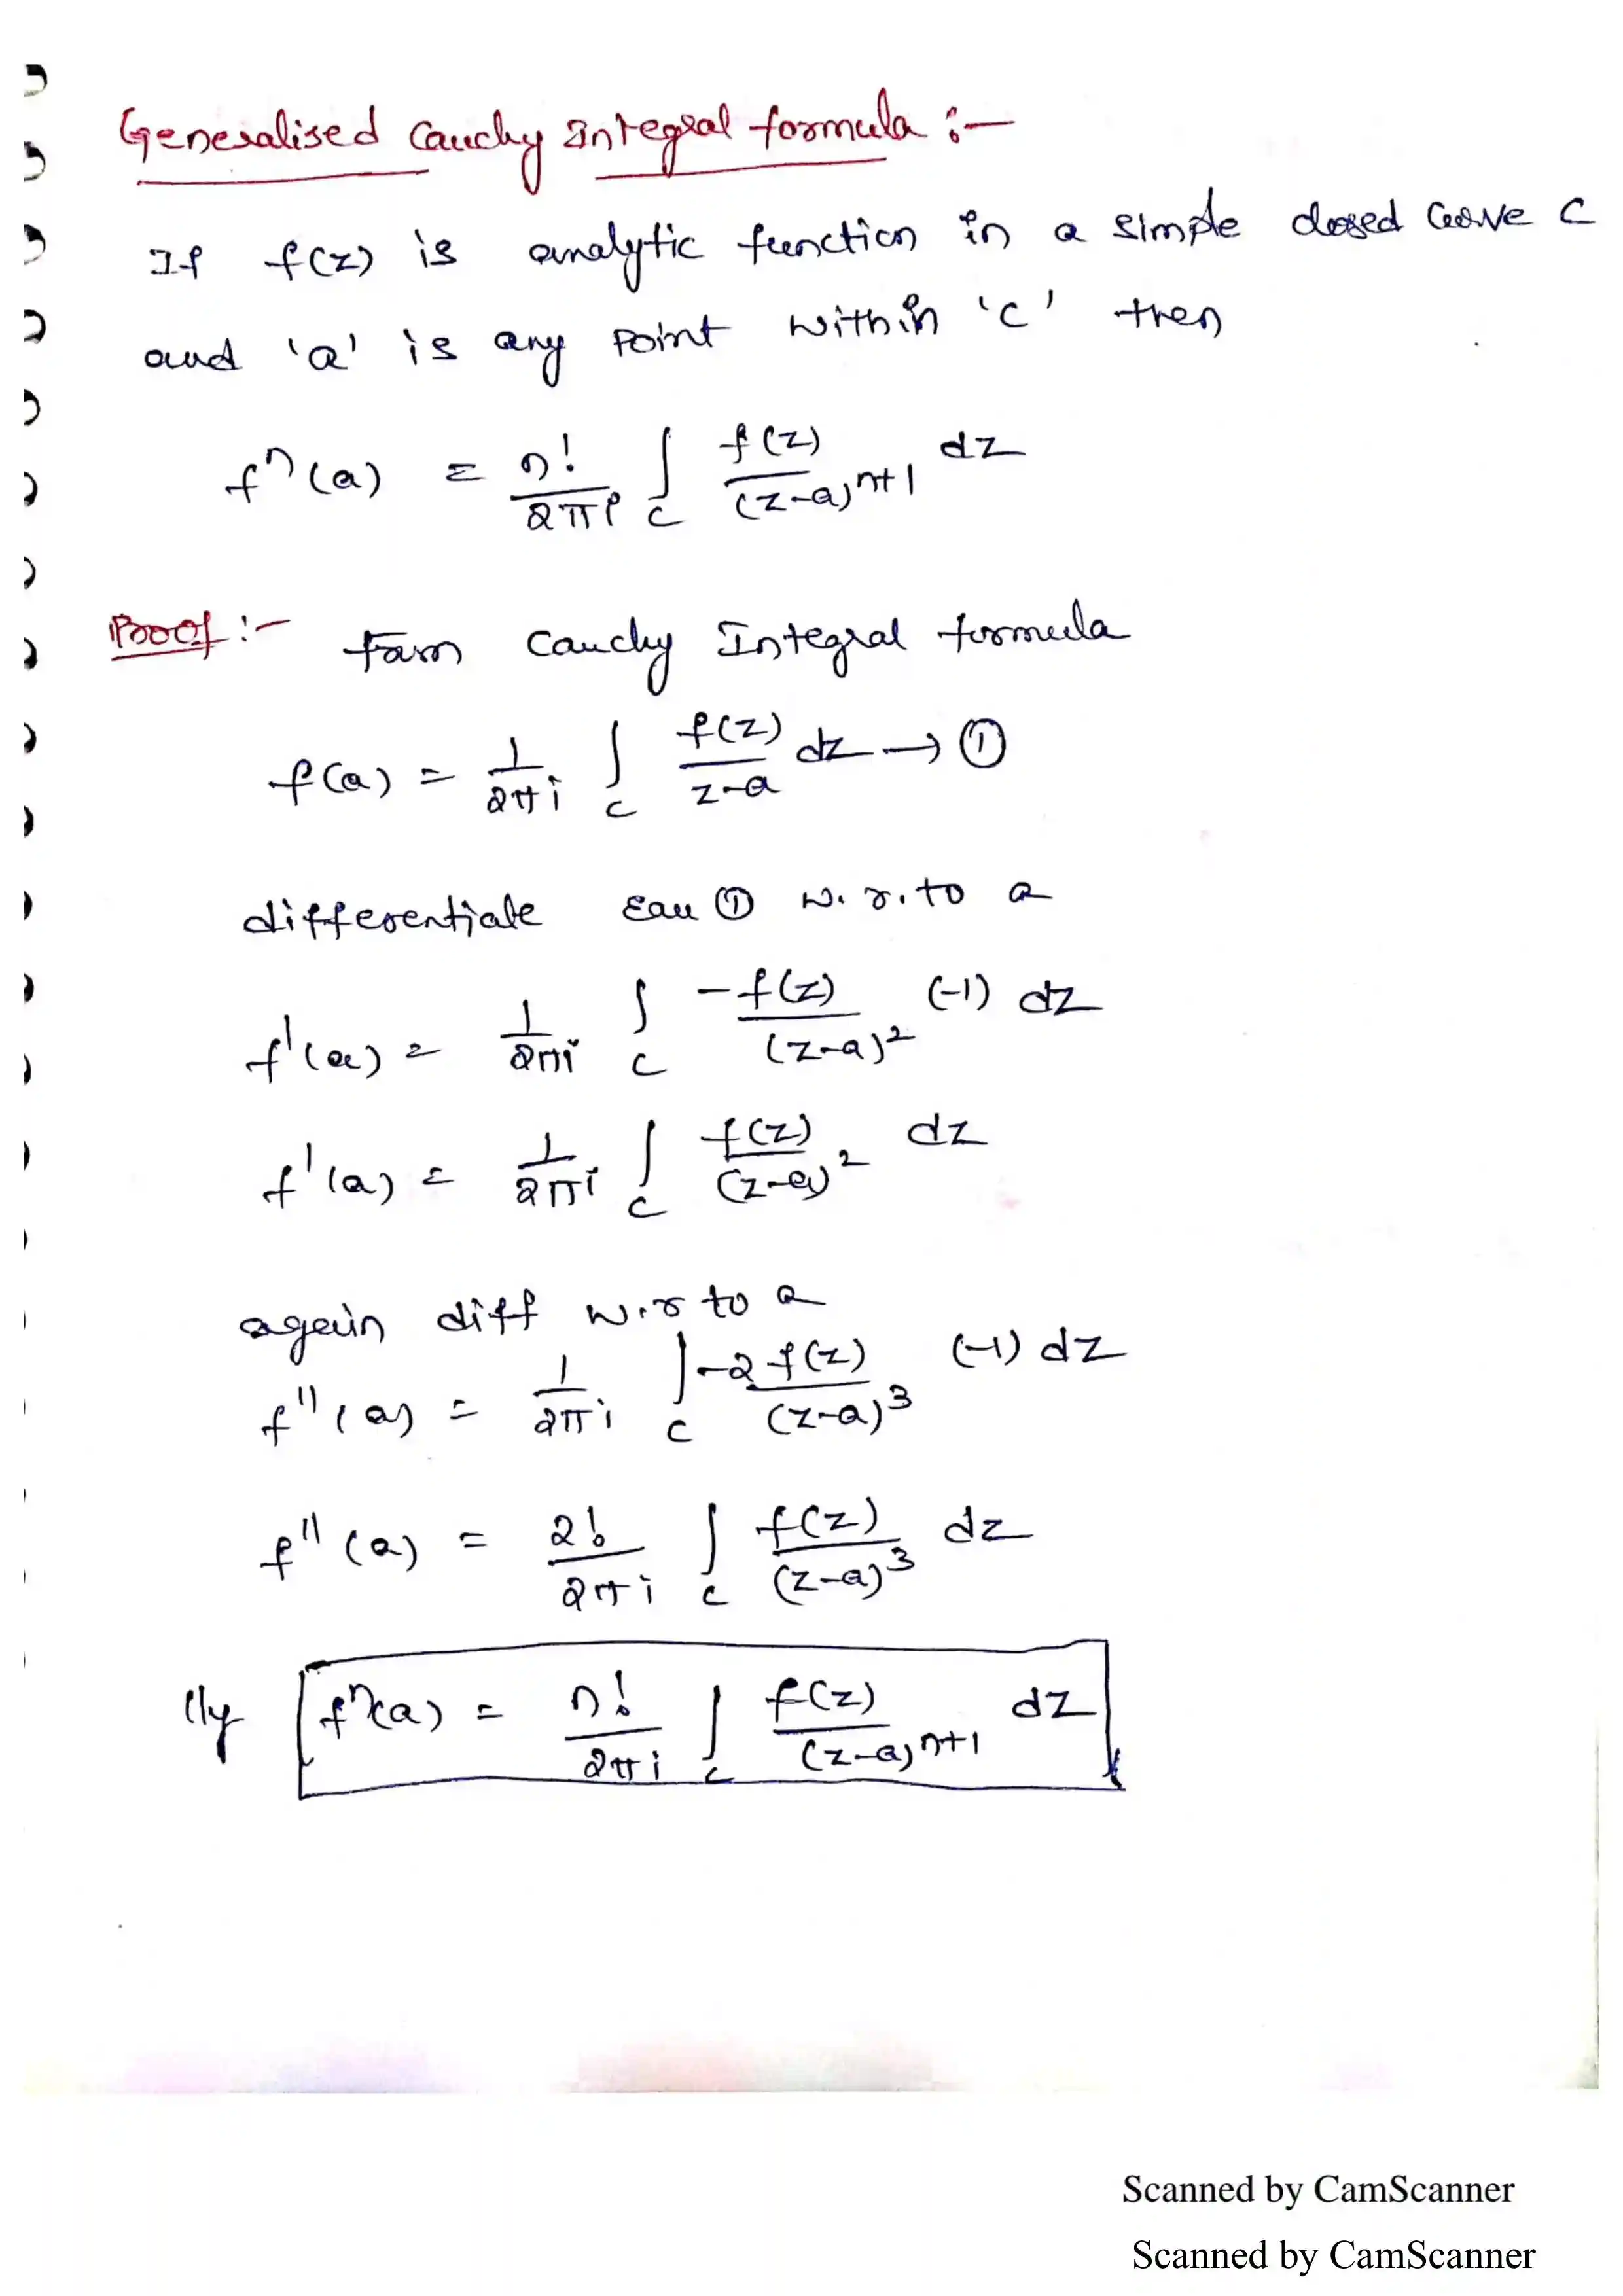 Generalised Cauchy Integral formula :-
If f(z) is analytic function in a simple closed curve C
and 'a' is any point within 'c' then
fⁿ(a) = n!/2πi ∫_C f(z)/(z-a)^{n+1} dz
Proof :- From Cauchy Integral formula
f(a) = 1/2πi ∫_C f(z)/z-a dz → ①
differentiate Equ ① w.r.to a
f'(a) = 1/2πi ∫_C -f(z)/(z-a)² (-1) dz
f'(a) = 1/2πi ∫_C f(z)/(z-a)² dz
again diff w.r to a
f''(a) = 1/2πi ∫_C -2f(z)/(z-a)³ (-1) dz
f''(a) = 2!/2πi ∫_C f(z)/(z-a)³ dz
lly fⁿ(a) = n!/2πi ∫_C f(z)/(z-a)^{n+1} dz
Scanned by CamScanner
Scanned by CamScanner